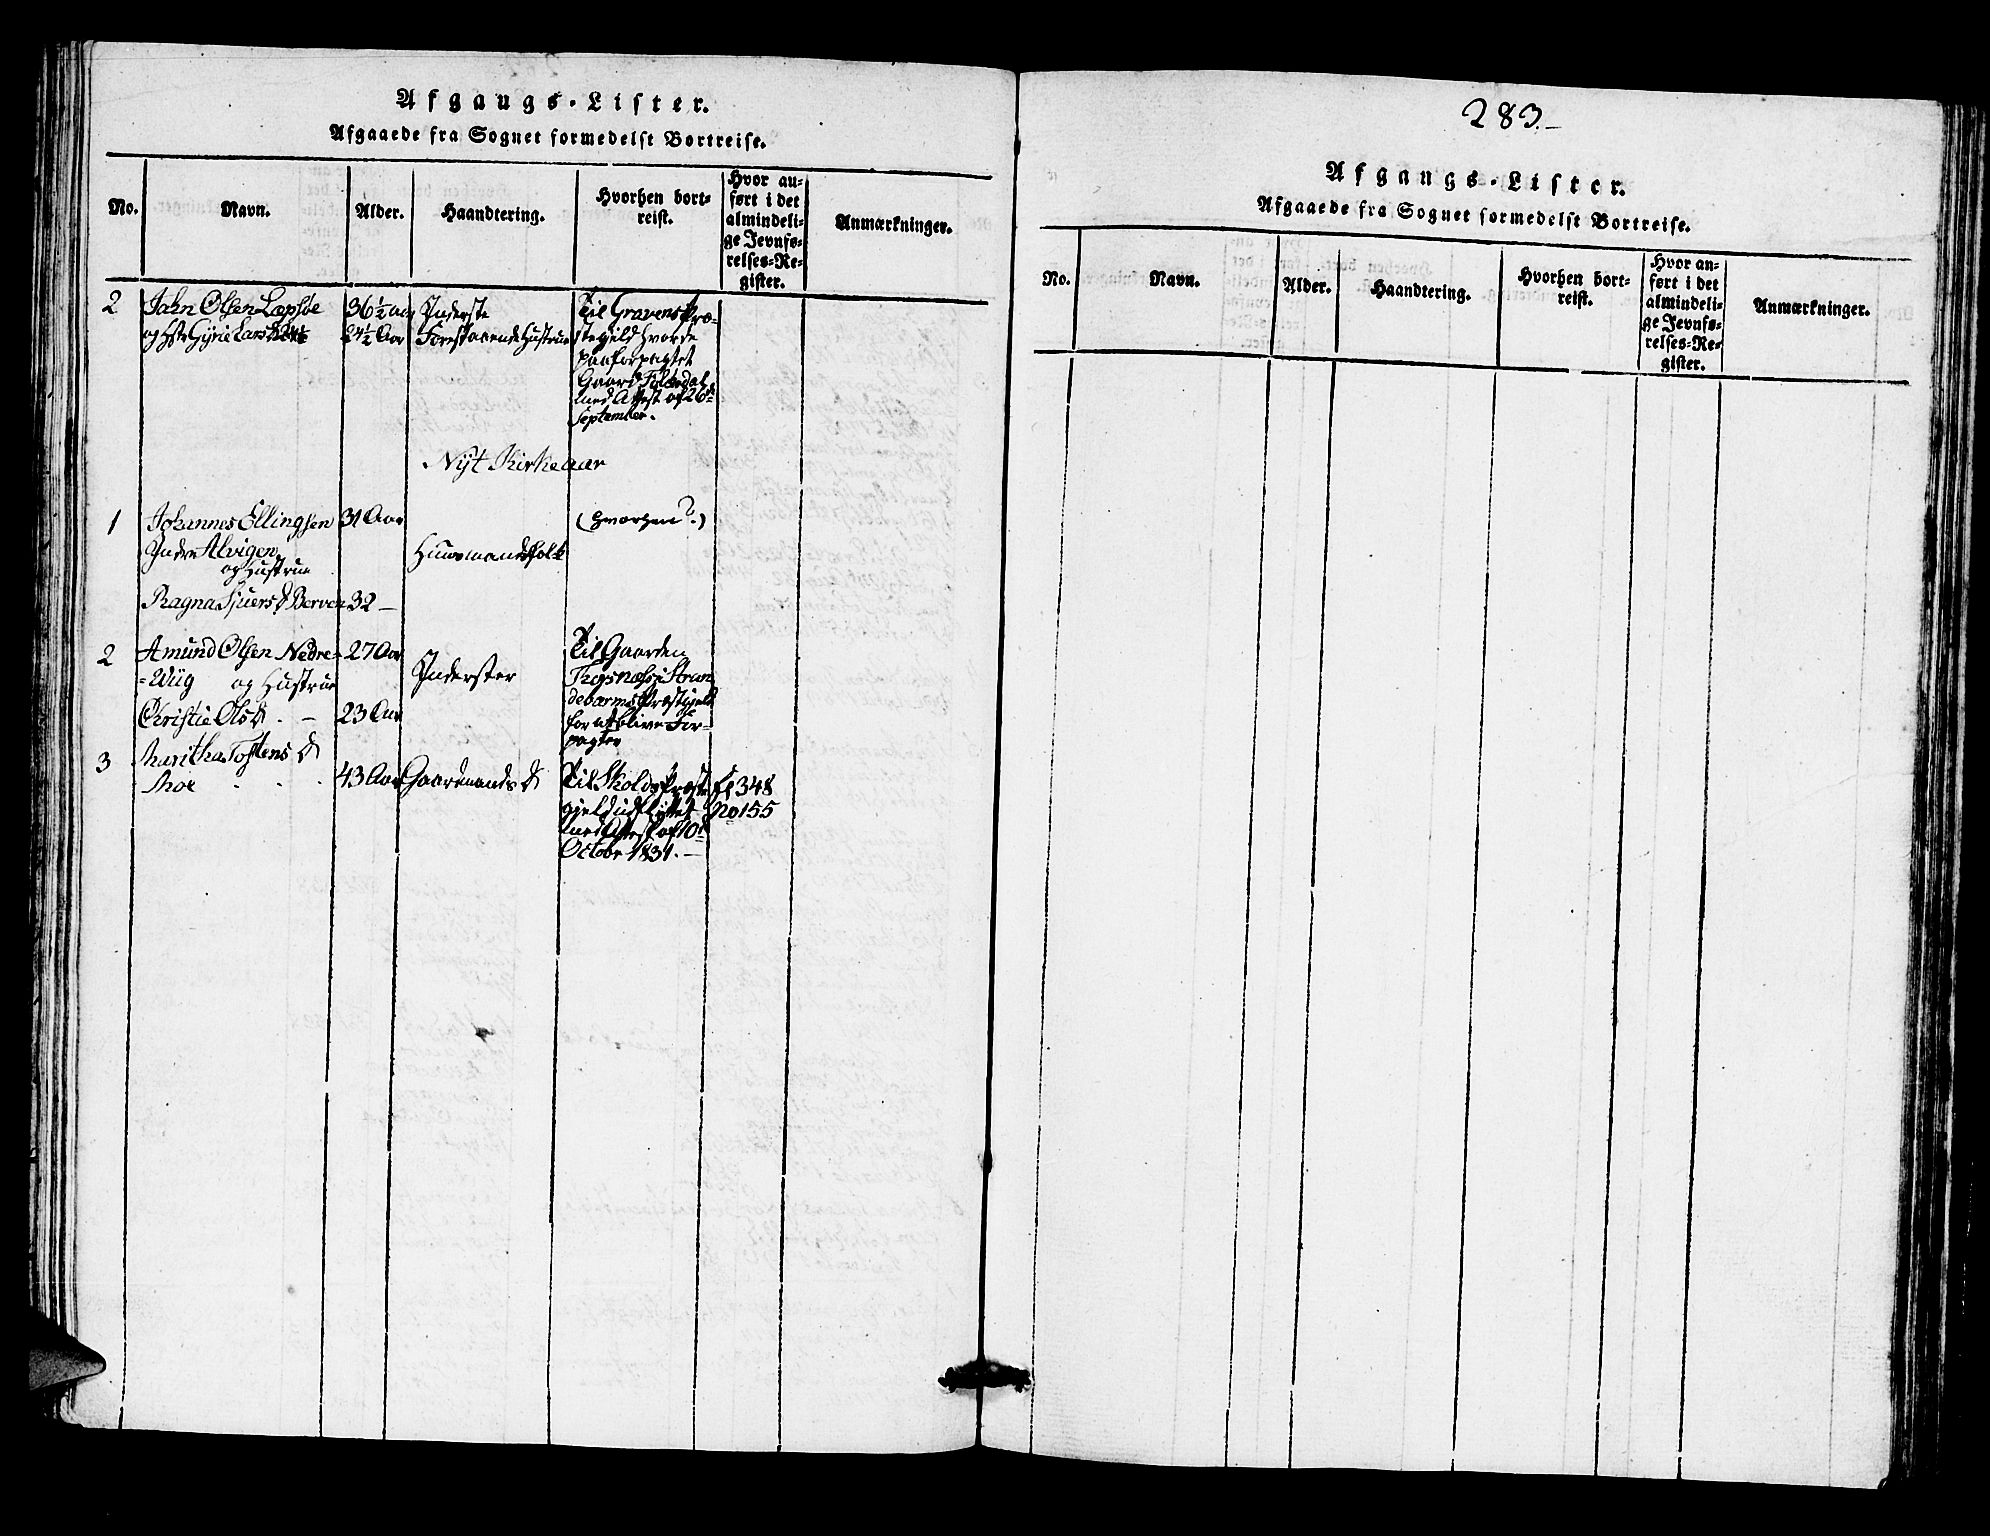 Afgangs-Lister.
Afgaaede fra Sognet formedelst Bortreise.
No.
Navn.
Alder.
Haandtering.
Hvorhen bort-
reist.
Hvor an-
ført i det
almindeli-
ge Jevnfø-
relses-Re-
gister.
Anmærkninger.
2
Jahn Olsen Læpsøe
og Hst Gyrie Lars
36½ Aar
24½ Aar
Inderste
Forestaaende Hustrue
Til Gravens Præ-
stegjeld hvor de
paa forpagtet
Gaard Folkedal
med Attest af 26de
September.
Nyt Kirkeaar
1
Johannes Ellingsen
Indre Alvigen
og Hustrue
Ragna Sjursd Berven
31 Aar
32 -
Huusmandsfolk
(hvorhen?.)
2
Amund Olsen Nedre-
=Wiig og Hustrue
Christie Olsd. -
27 Aar
23 Aar
Inderster
Til Gaarden
Thosnæss i Stran
debarms Præstgjeld
for at blive For-
pagter
3
Maritha Tostensd
Moe
43 Aar
Gaardmandsd
Til Skolds Præste
gjeld udflyttet
med Attest af 10d
Octobr 1831. -
Fl 348
No 155
283.-
Afgangs-Lister.
Afgaaede fra Sognet formedelst Bortreise.
No.
Navn.
Alder.
Haandtering.
Hvorhen bort-
reist.
Hvor an-
ført i det
almindeli-
ge Jevnfø-
relses-Re-
gister.
Anmærkninger.